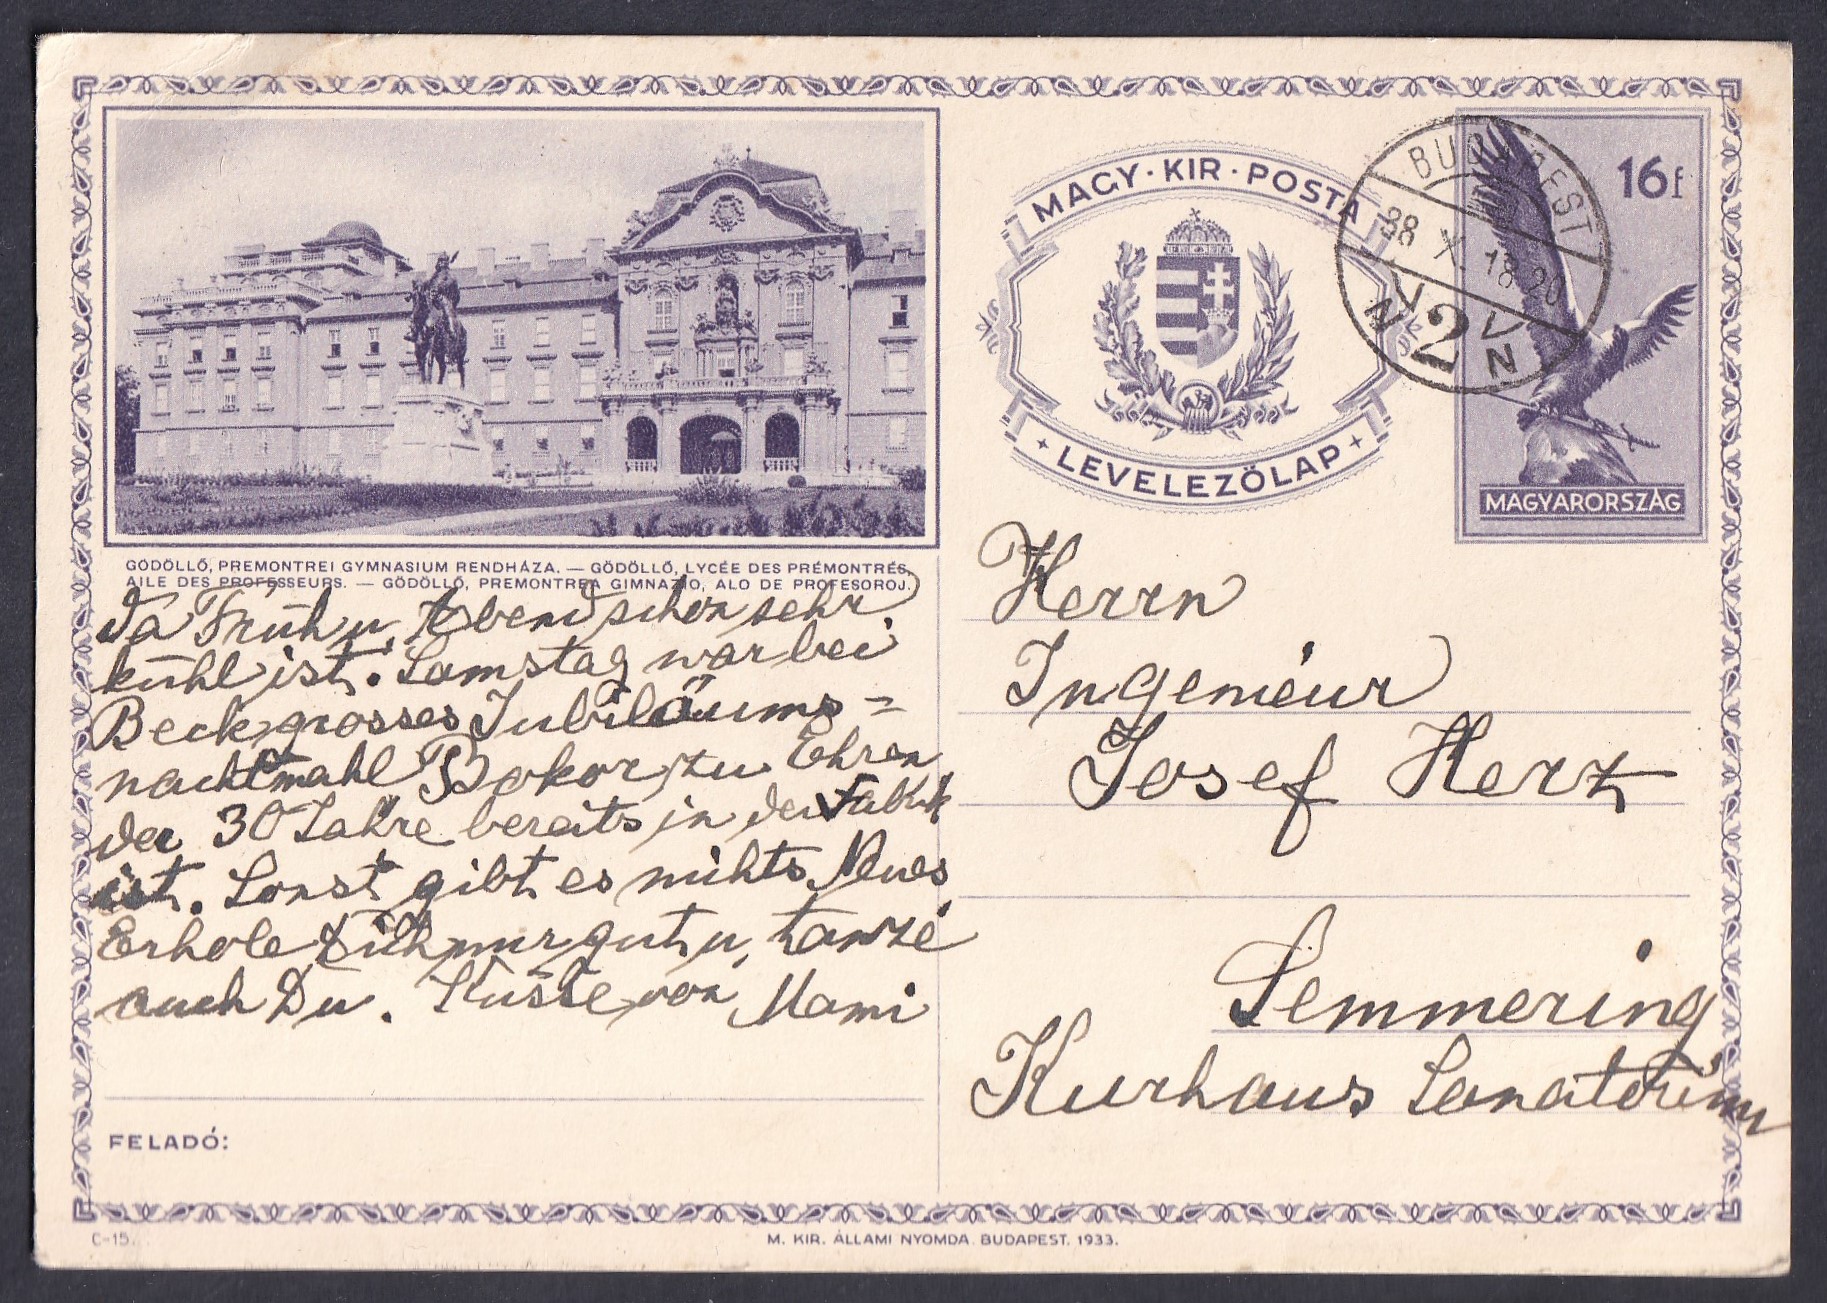 MAGY · KIR · POSTA
LEVELEZŐLAP
BUDAPEST
38 X. 18 20
N 2 N
16 f
MAGYARORSZÁG
GÖDÖLLŐ, PREMONTREI GYMNASIUM RENDHÁZA. — GÖDÖLLŐ, LYCÉE DES PRÉMONTRÉS,
AILE DES PROFESSEURS. — GÖDÖLLŐ, PREMONTREA GIMNAZIO, ALO DE PROFESOROJ.
da Früh u. Abend schon sehr
kühl ist. Samstag war bei
Beck grosses Jubiläums=
nachtmahl Bokor, zu Ehren
der 30 Jahre bereits in der Fabrik
ist. Sonst gibt es nichts Neues
Erhole Dich nur gut u. tanze
auch Du. Küsse von Mami
FELADÓ:
Herrn
Ingenieur
Josef Herz
Semmering
Kurhaus Sanatorium
C-15.
M. KIR. ÁLLAMI NYOMDA. BUDAPEST. 1933.